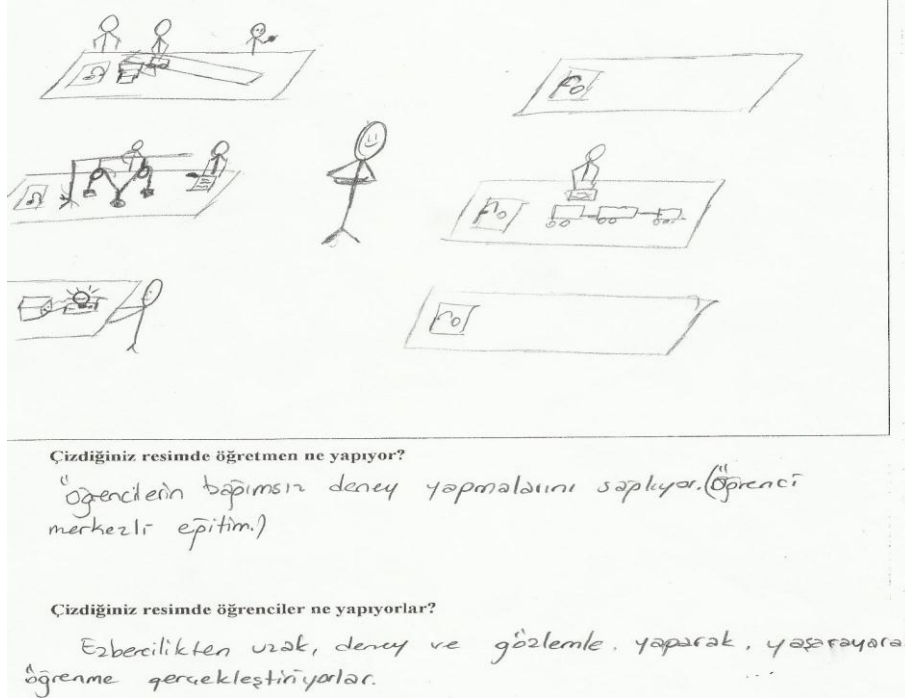 Çizdiğiniz resimde öğretmen ne yapıyor?
Öğrencilerin bağımsız deney yapmalarını sağlıyor. (Öğrenci
merkezli eğitim.)
Çizdiğiniz resimde öğrenciler ne yapıyorlar?
Ezbercilikten uzak, deney ve gözlemle, yaparak, yaşayara
öğrenme gerçekleştiriyorlar.